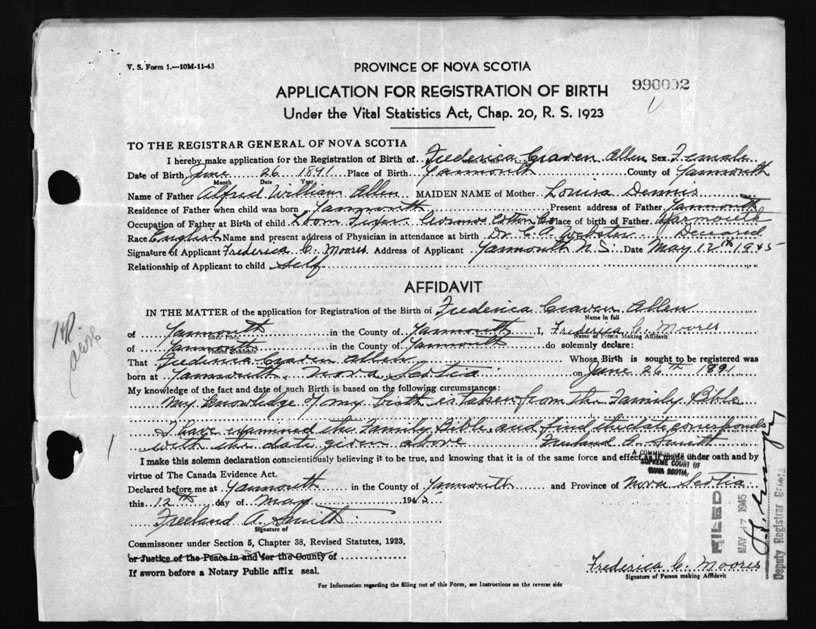 V. S. Form 1.—10M-11-43
PROVINCE OF NOVA SCOTIA
APPLICATION FOR REGISTRATION OF BIRTH
990002
Under the Vital Statistics Act, Chap. 20, R. S. 1923
TO THE REGISTRAR GENERAL OF NOVA SCOTIA
I hereby make application for the Registration of Birth of Frederica Craven Allen Sex Female
Date of Birth June 26 1891 Place of Birth Yarmouth County of Yarmouth
Month Date Year
Name of Father Alfred William Allen MAIDEN NAME of Mother Louisa Dennis
Residence of Father when child was born Yarmouth Present address of Father Yarmouth
Occupation of Father at Birth of child Loom Fixer Cosmos Cotton Co Place of birth of Father Yarmouth
Race English Name and present address of Physician in attendance at birth Dr. C. A. Webster Deceased
Signature of Applicant Frederica C. Moores Address of Applicant Yarmouth N.S. Date May 12th 1945
Relationship of Applicant to child Self
AFFIDAVIT
IN THE MATTER of the application for Registration of the Birth of Frederica Craven Allen
Name in full
of Yarmouth in the County of Yarmouth I, Frederica C. Moores
Name of Person Making Affidavit
of Yarmouth in the County of Yarmouth do solemnly declare:
That Frederica Craven Allen Whose Birth is sought to be registered was
born at Yarmouth Nova Scotia on June 26th 1891
My knowledge of the fact and date of such Birth is based on the following circumstances:
My Knowledge of my birth is taken from the Family Bible
I have examined the Family Bible and find the date corresponds
with the date given above Freeland A. Smith
I make this solemn declaration conscientiously believing it to be true, and knowing that it is of the same force and effect as if made under oath and by
SUPREME COURT OF
NOVA SCOTIA
virtue of The Canada Evidence Act.
Declared before me at Yarmouth in the County of Yarmouth and Province of Nova Scotia
this 12th day of May 1945
Freeland A. Smith
Signature of
Commissioner under Section 5, Chapter 38, Revised Statutes, 1923,
or Justice of the Peace in and for the County of
If sworn before a Notary Public affix seal.
Frederica C. Moores
Signature of Person making Affidavit
For Information regarding the filling out of this Form, see Instructions on the reverse side
FILED
MAY 17 1945
Deputy Registrar